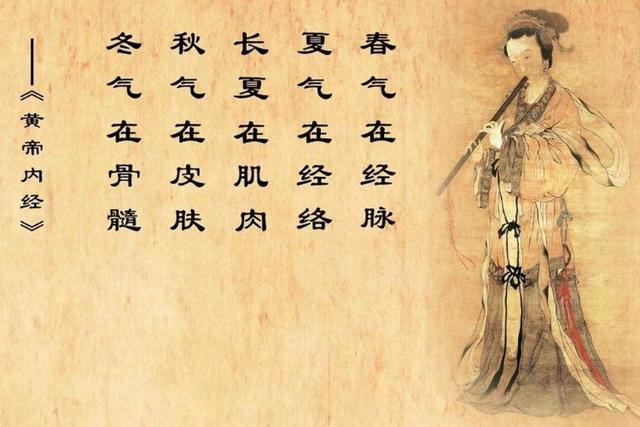 春气在经脉
夏气在经络
长夏在肌肉
秋气在皮肤
冬气在骨髓
—《黄帝内经》